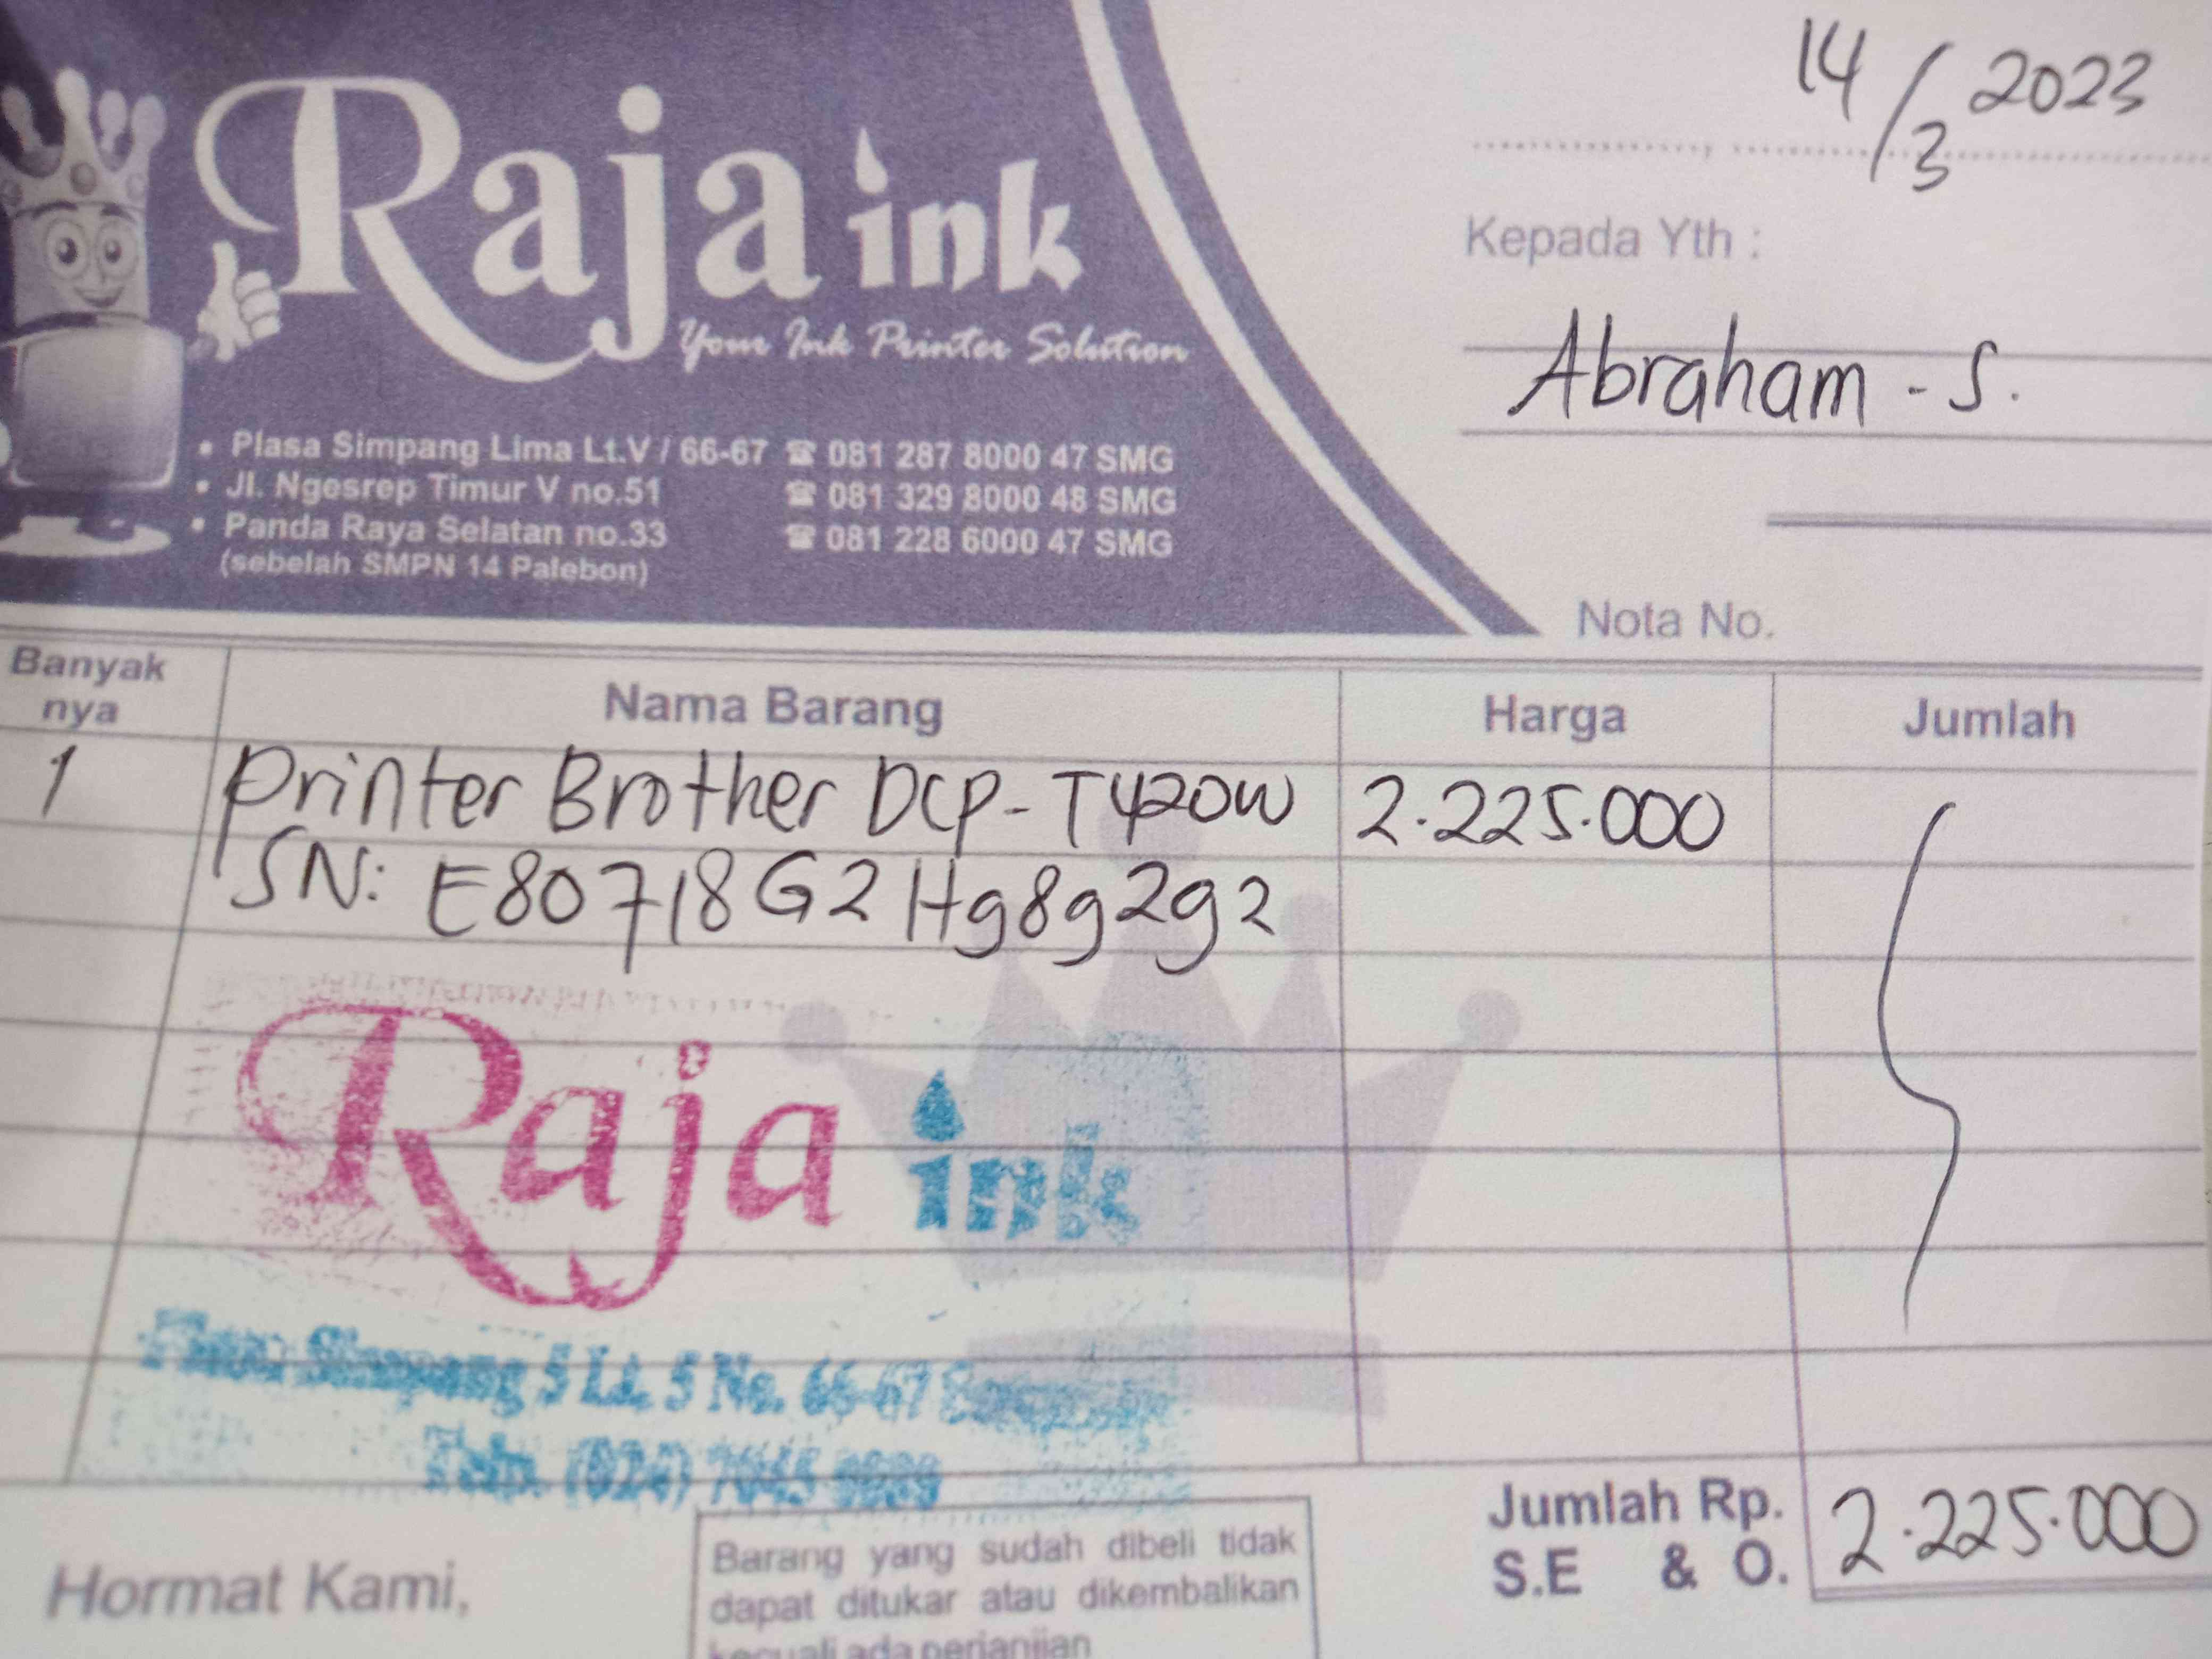 14/3 2023
Raja ink
Your Ink Printer Solution
Kepada Yth :
Abraham - S.
• Plasa Simpang Lima Lt.V / 66-67 ☎ 081 287 8000 47 SMG
• Jl. Ngesrep Timur V no.51 ☎ 081 329 8000 48 SMG
• Panda Raya Selatan no.33 ☎ 081 228 6000 47 SMG
(sebelah SMPN 14 Palebon)
Nota No.
Banyak nya Nama Barang Harga Jumlah
1 Printer Brother DCP-T420W 2.225.000
SN: E80718G2Hg8g2g2
Raja ink
Simpang 5 Lt. 5 No. 66-67
Telp. (024) 7645
Jumlah Rp. 2.225.000
S.E & O.
Hormat Kami,
Barang yang sudah dibeli tidak
dapat ditukar atau dikembalikan
kecuali ada perjanjian